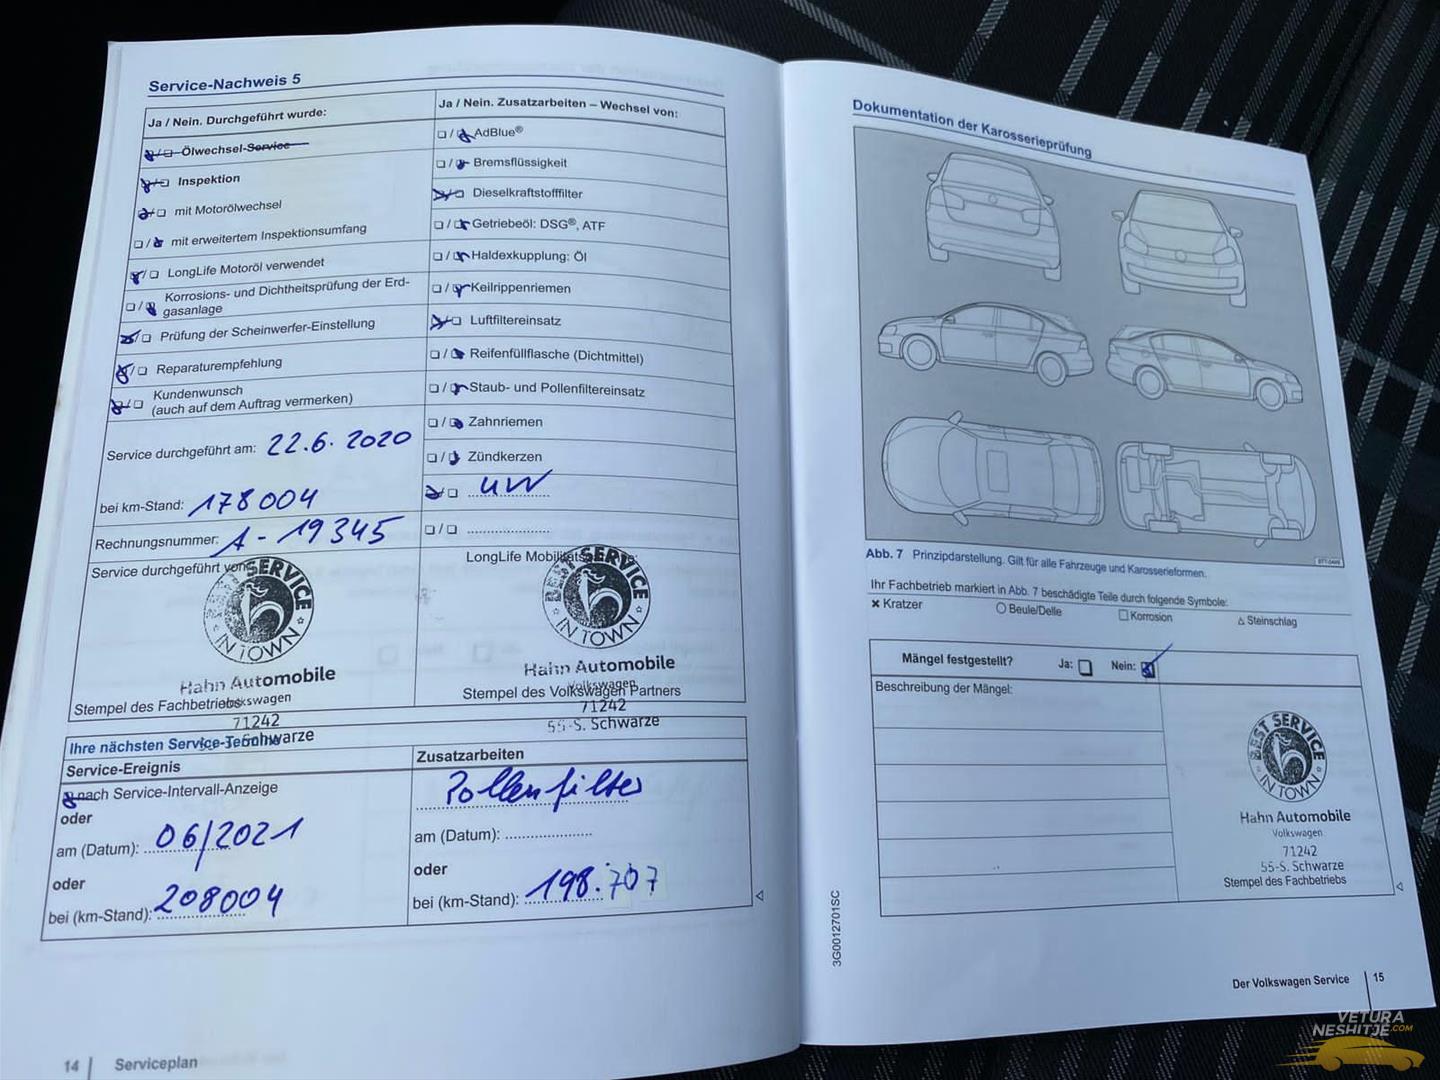 Service-Nachweis 5
Ja / Nein. Durchgeführt wurde:
Ölwechsel-Service
Inspektion
mit Motorölwechsel
mit erweitertem Inspektionsumfang
LongLife Motoröl verwendet
Korrosions- und Dichtheitsprüfung der Erd-
gasanlage
Prüfung der Scheinwerfer-Einstellung
Reparaturempfehlung
Kundenwunsch
(auch auf dem Auftrag vermerken)
Service durchgeführt am: 22.6.2020
bei km-Stand: 178004
Rechnungsnummer: A-19345
Service durchgeführt von:
BEST SERVICE
IN TOWN
Hahn Automobile
Volkswagen
Stempel des Fachbetriebs
71242
Schwarze
Ja / Nein. Zusatzarbeiten – Wechsel von:
AdBlue®
Bremsflüssigkeit
Dieselkraftstofffilter
Getriebeöl: DSG®, ATF
Haldexkupplung: Öl
Keilrippenriemen
Luftfiltereinsatz
Reifenfüllflasche (Dichtmittel)
Staub- und Pollenfiltereinsatz
Zahnriemen
Zündkerzen
UW
LongLife
BEST SERVICE
IN TOWN
Hahn Automobile
Volkswagen
Stempel des Volkswagen Partners
71242
55-S. Schwarze
Ihre nächsten Service-Termine
Service-Ereignis
nach Service-Intervall-Anzeige
oder
am (Datum): 06/2021
oder
bei (km-Stand): 208004
Zusatzarbeiten
Pollenfilter
am (Datum):
oder
bei (km-Stand): 198.707
14 | Serviceplan
Dokumentation der Karosserieprüfung
Abb. 7 Prinzipdarstellung. Gilt für alle Fahrzeuge und Karosserieformen.
Ihr Fachbetrieb markiert in Abb. 7 beschädigte Teile durch folgende Symbole:
× Kratzer
○ Beule/Delle
□ Korrosion
△ Steinschlag
Mängel festgestellt? Ja: Nein:
Beschreibung der Mängel:
BEST SERVICE
IN TOWN
Hahn Automobile
Volkswagen
71242
55-S. Schwarze
Stempel des Fachbetriebs
3G0012701SC
Der Volkswagen Service | 15
VETURA
NESHITJE.COM